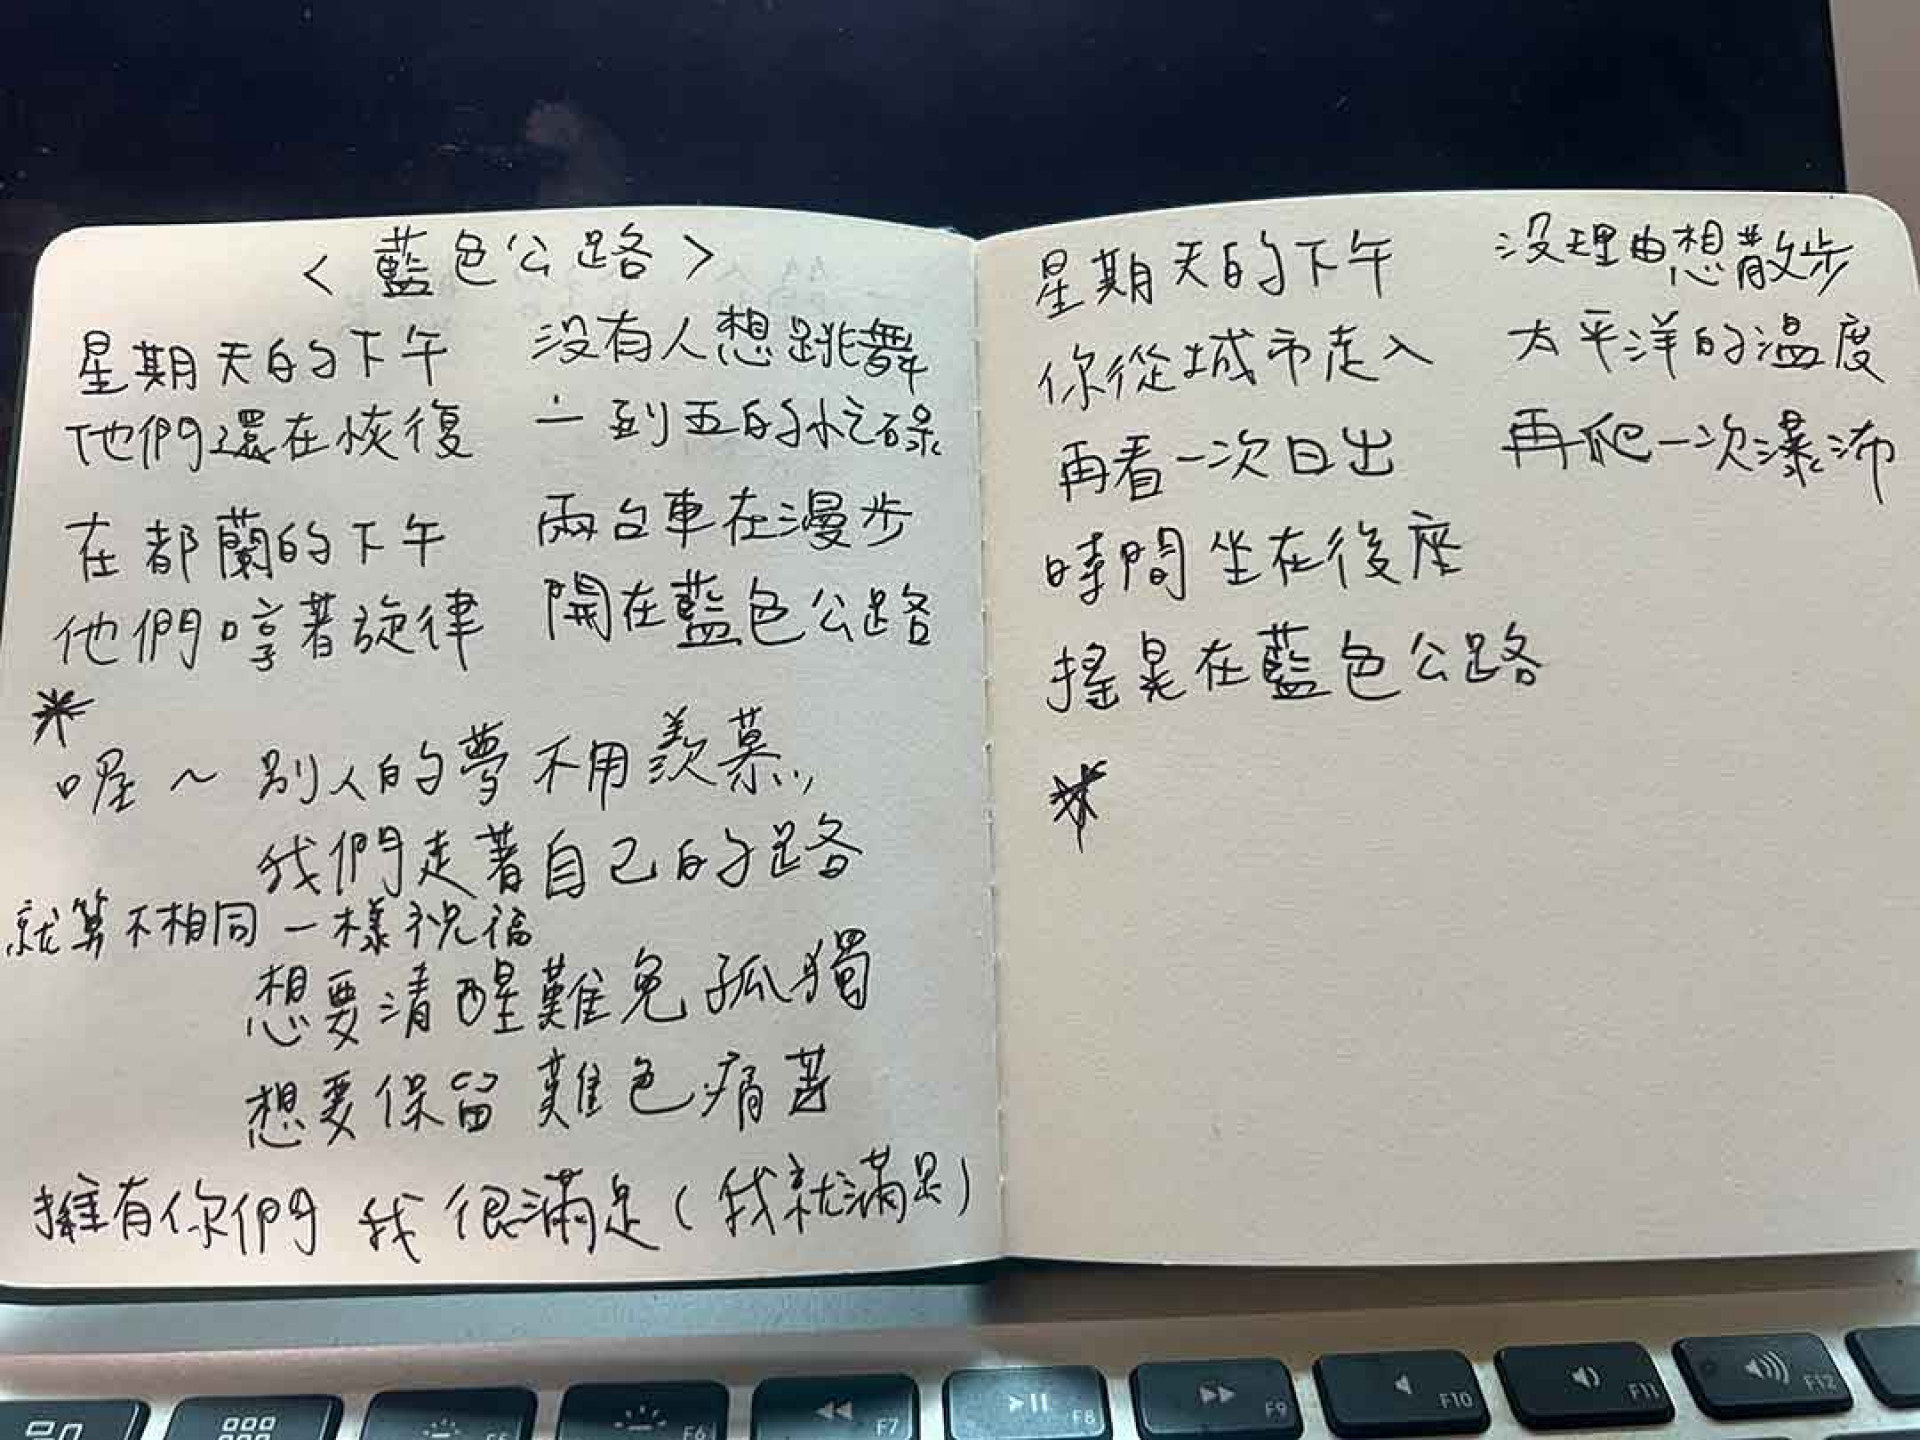 < 藍色公路 >
星期天的下午 沒有人想跳舞
他們還在恢復 一到五的忙碌
在都蘭的下午 兩台車在漫步
他們哼著旋律 開在藍色公路
*
喔~別人的夢不用羨慕,
我們走著自己的路
就算不相同一樣祝福
想要清醒難免孤獨
想要保留難色痛苦
擁有你們 我很滿足(我就滿足)
星期天的下午 沒理由想散步
你從城市走入 太平洋的溫度
再看一次日出 再爬一次瀑沛
時間坐在後座
搖晃在藍色公路
*
F5
F6
F7
F8
F9
F10
F11
F12